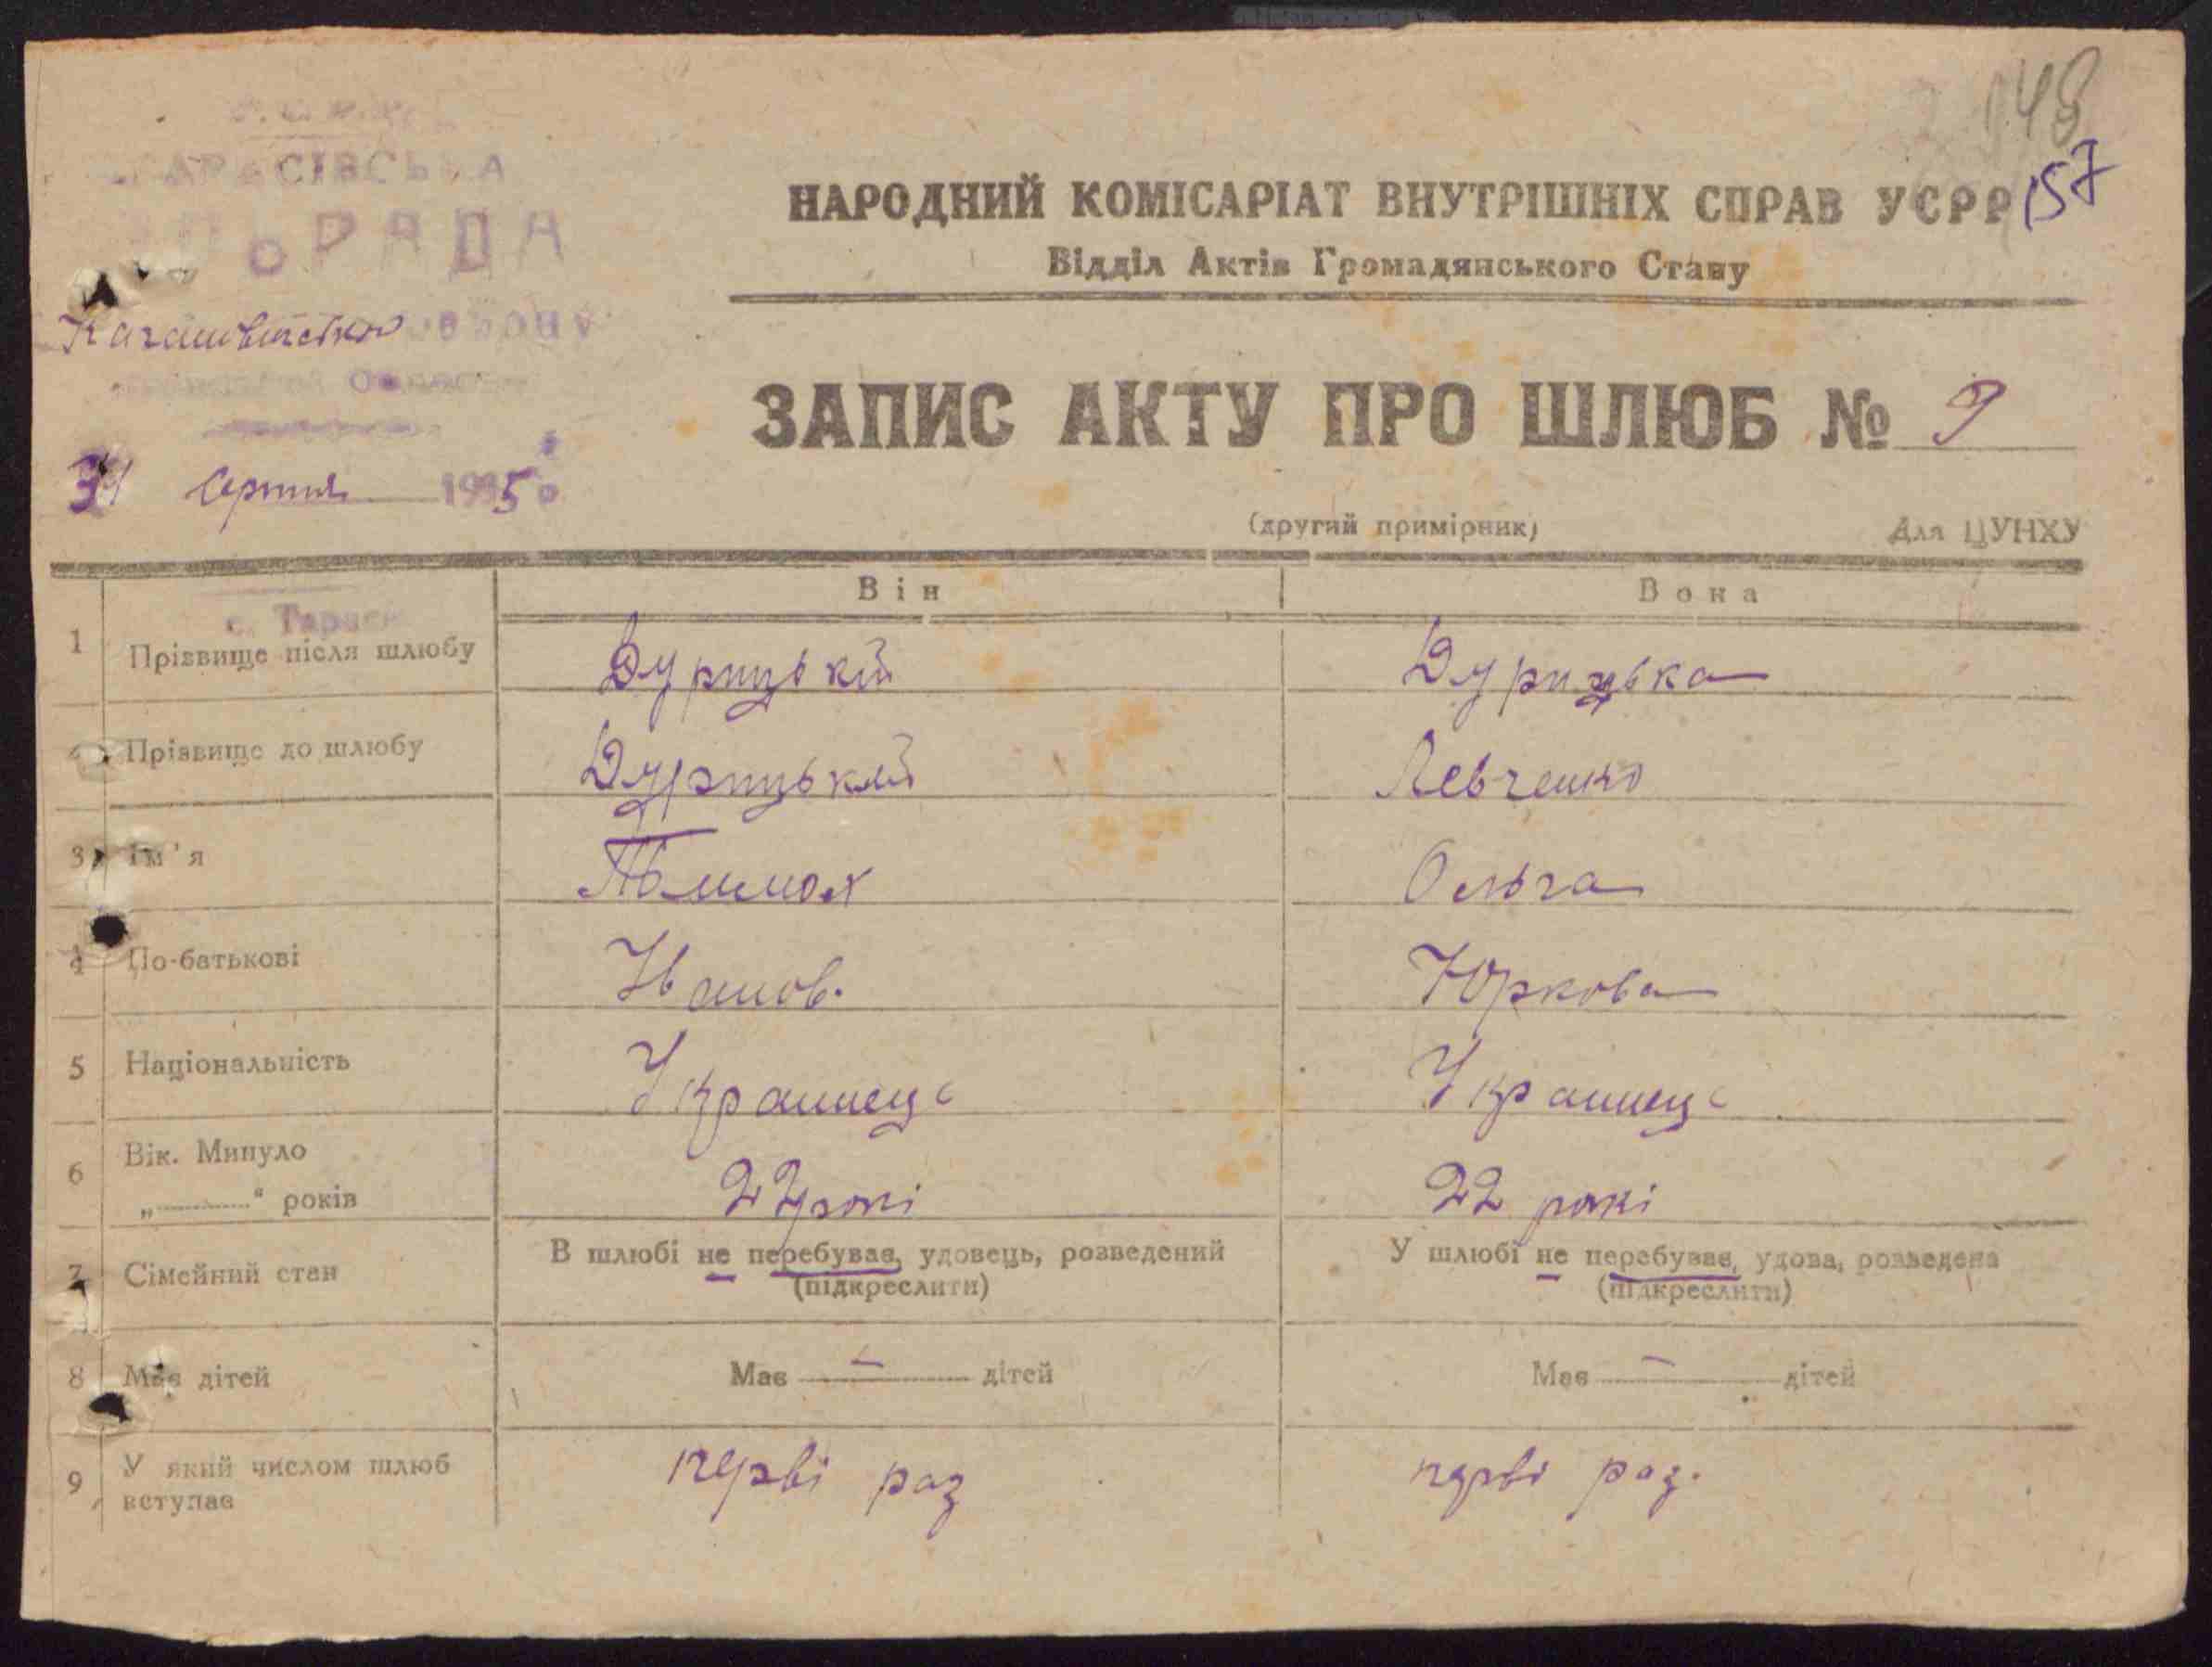 148
157
СІЛЬРАДА
Кагановичсько
серпня 1935
НАРОДНИЙ КОМІСАРІАТ ВНУТРІШНІХ СПРАВ УСРР
Відділ Актів Громадянського Стану
ЗАПИС АКТУ ПРО ШЛЮБ № 9
(другий примірник) Для ЦУНХУ
Він Вона
1 Прізвище після шлюбу Дурицькій Дурицька
Прізвище до шлюбу Дурицький Левченко
3 Ім'я Ольга
4 По-батькові Іванов. Юркова
5 Національність Украинець Украинець
6 Вік. Минуло „ “ років 22 рокі 22 рокі
7 Сімейний стан В шлюбі не перебував, удовець, розведений (підкреслити) У шлюбі не перебував, удова, розведена (підкреслити)
8 Має дітей Має — дітей Має — дітей
9 У який числом шлюб вступає перві раз перві раз.